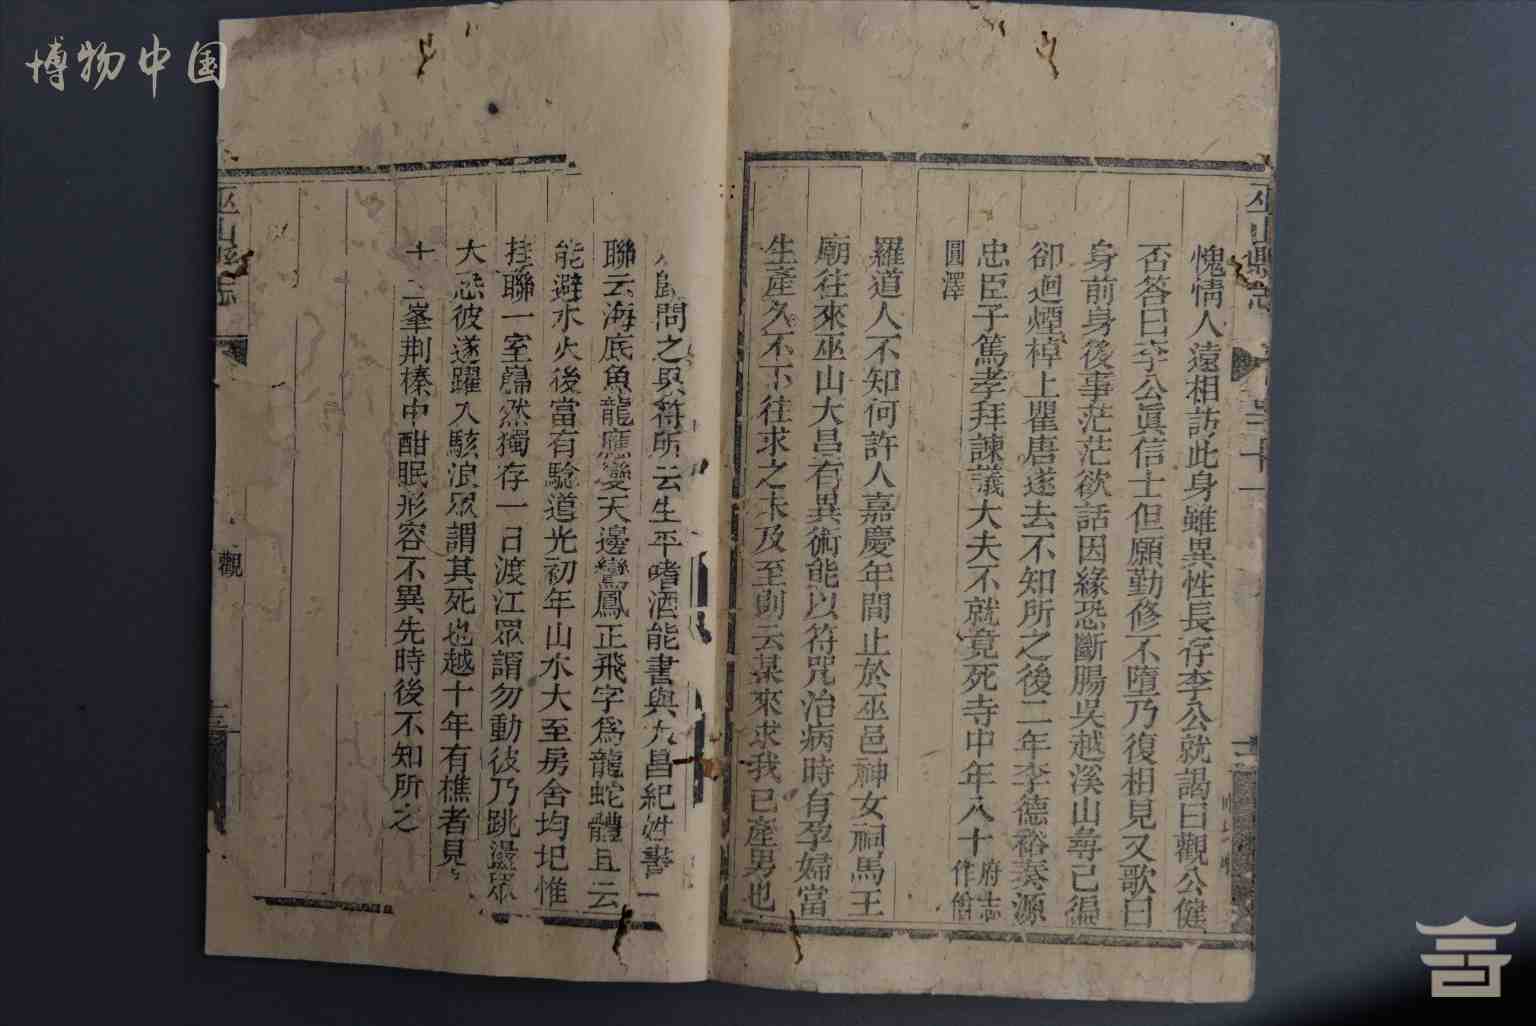 博物中国
巫山縣志
愧情人遠相訪此身雖異性長存李公就謁曰觀公健
否答曰李公眞信士但願勤修不墮乃復相見又歌曰
身前身後事茫茫欲話因緣恐斷腸吳越溪山尋已徧
卻迴煙棹上瞿唐遂去不知所之後二年李德裕奏源
忠臣子篤孝拜諫議大夫不就竟死寺中年八十府志作僧
圓澤
羅道人不知何許人嘉慶年間止於巫邑神女祠馬王
廟往來巫山大昌有異術能以符咒治病時有孕婦當
生產久不下往求之未及至則云某來求我已產男也
歸問之與符所云生平嗜酒能書與大昌紀姓書一
聯云海底魚龍應變天邊鸞鳳正飛字爲龍蛇體且云
能避水火後當有驗道光初年山水大至房舍均圮惟
挂聯一室巋然獨存一日渡江眾謂勿動彼乃跳盪眾
大恐彼遂躍入駭浪眾謂其死也越十年有樵者見
十二峯荆榛中酣眠形容不異先時後不知所之
巫山縣志
觀